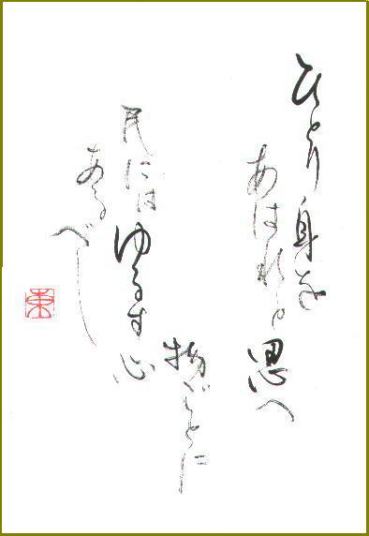 ひとり身を
あはれと思へ
物ごとに
民にはゆるす心
あるべし